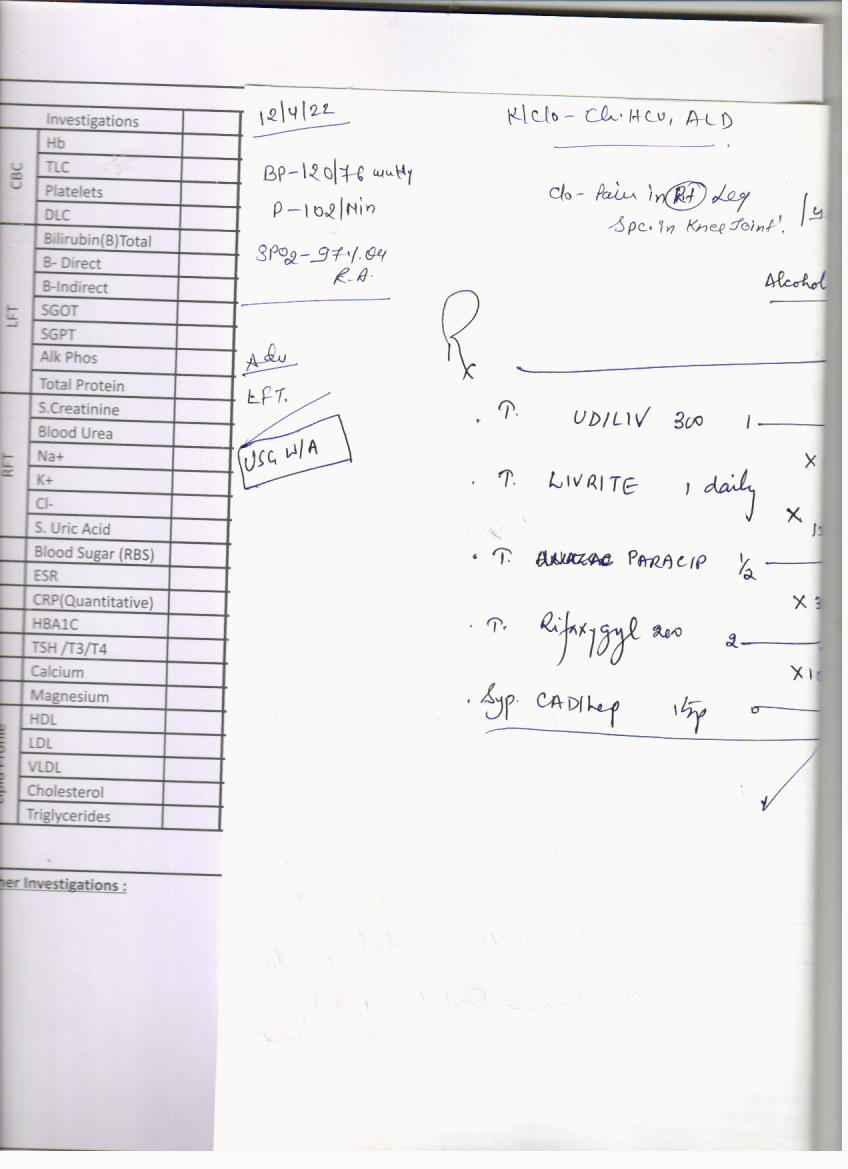 Investigations
CBC
Hb
TLC
Platelets
DLC
LFT
Bilirubin(B)Total
B- Direct
B-Indirect
SGOT
SGPT
Alk Phos
Total Protein
RFT
S.Creatinine
Blood Urea
Na+
K+
Cl-
S. Uric Acid
Blood Sugar (RBS)
ESR
CRP(Quantitative)
HBA1C
TSH /T3/T4
Calcium
Magnesium
HDL
LDL
VLDL
Cholesterol
Triglycerides
her Investigations :
12/4/22
BP-120/76 mmHg
P-102/Min
SPO2-97%. on
R.A.
Adv
LFT.
USG W/A
K/C/o - Ch. HCV, ALD
C/o - Pain in Rt Leg
Spc. in Knee Joint.
Alcohol
Rx
. T. UDILIV 300 1
X
. T. LIVRITE 1 daily
X 15
. T. PARACIP 1/2
X 3
. T. Rifaxygyl 200 2
X 10
. Syp. 0